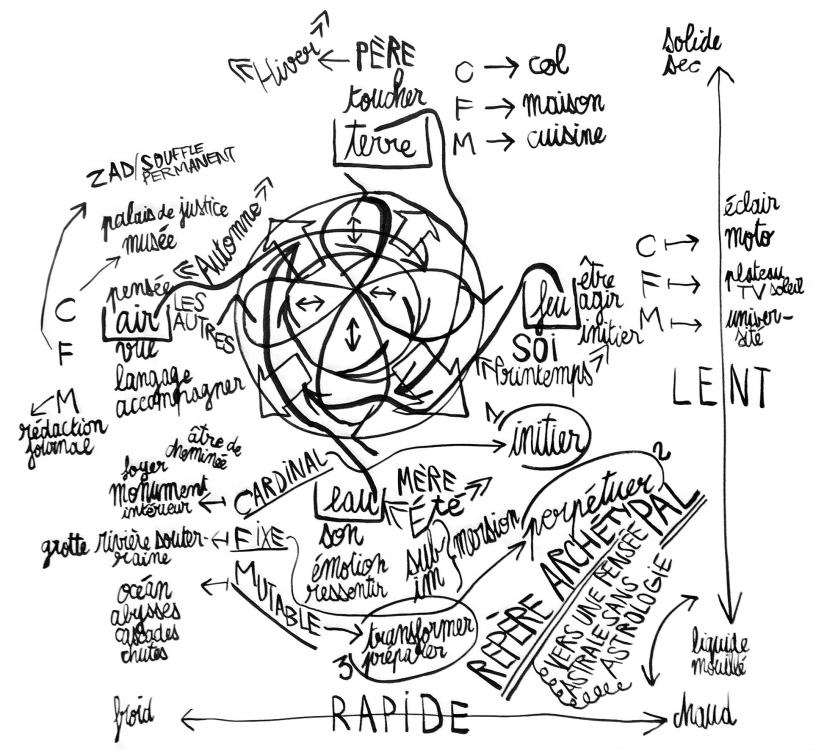 Hiver
PÈRE
toucher
terre
C → col
F → maison
M → cuisine
solide
sec
ZAD/SOUFFLE
PERMANENT
palais de justice
musée
Automne
pensée
air
LES
AUTRES
vue
langage
accompagner
C
F
M
rédaction
journal
feu
être
agir
initier
SOI
Printemps
C → éclair
moto
F → plateau
TV soleil
M → univer-
sité
LENT
âtre de
cheminée
foyer
monument
intérieur
← CARDINAL
1
initier
grotte rivière souter-
raine
← FIXE
océan
abysses
cascades
chutes
← MUTABLE
eau
MÈRE
Été
son
émotion
ressentir
sub
im
mersion
perpétuer
2
3
transformer
préparer
REPÈRE ARCHÉTYPAL
VERS UNE PENSÉE
ASTRALE SANS
ASTROLOGIE
liquide
mouillé
froid
RAPIDE
chaud